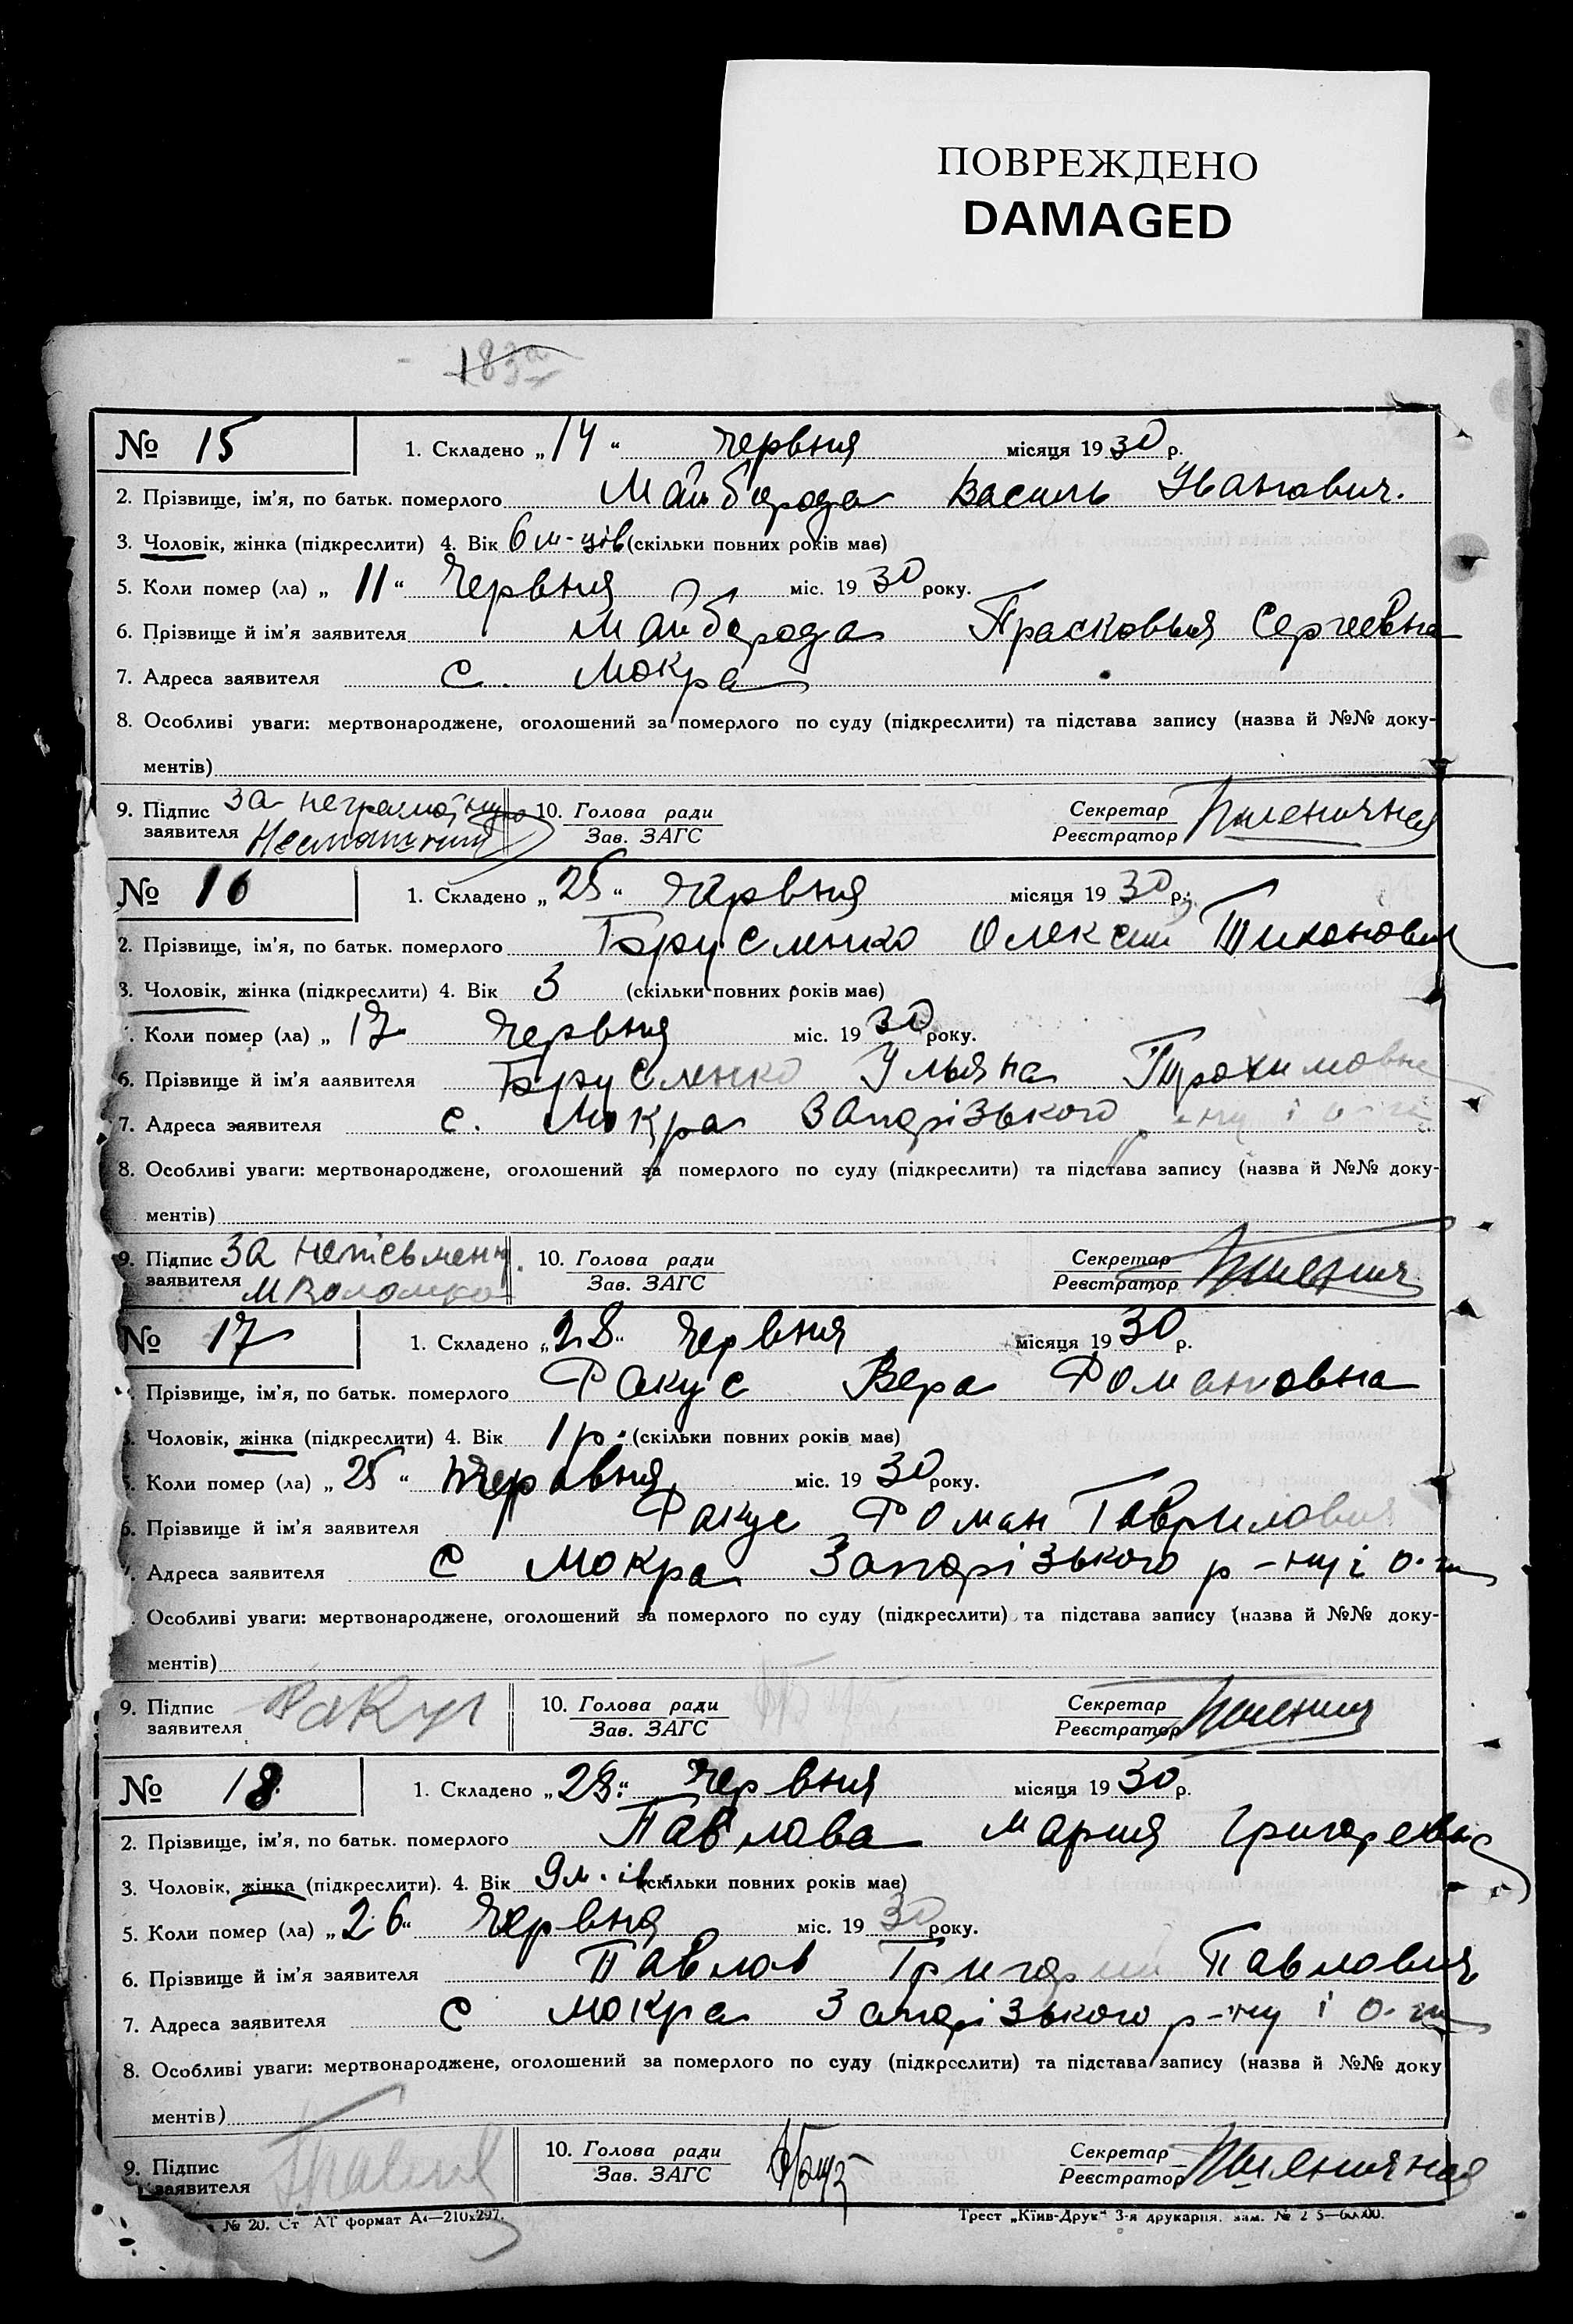 ПОВРЕЖДЕНО
DAMAGED
183а
№ 15 1. Складено „14“ червня місяця 1930 р.
2. Прізвище, ім'я, по батьк. померлого Майборода Василь Иванович.
3. Чоловік, жінка (підкреслити) 4. Вік 6 м-ців (скільки повних років має)
5. Коли помер (ла) „11“ червня міс. 1930 року.
6. Прізвище й ім'я заявителя Майборода Прасковья Сергеевна
7. Адреса заявителя с. Мокра
8. Особливі уваги: мертвонароджене, оголошений за померлого по суду (підкреслити) та підстава запису (назва й №№ доку-
ментів)
9. Підпис заявителя За неграмотну
10. Голова ради Зав. ЗАГС Секретар Реєстратор Пшеничная
№ 16 1. Складено „25“ червня місяця 1930 р.
2. Прізвище, ім'я, по батьк. померлого Брусленко Олексий Тихонович
3. Чоловік, жінка (підкреслити) 4. Вік 3 (скільки повних років має)
Коли помер (ла) „17 червня міс. 1930 року.
6. Прізвище й ім'я ааявителя Брусленко Ульяна Трохимовна
7. Адреса заявителя с. Мокра Запорізького р-ну і о-ги
8. Особливі уваги: мертвонароджене, оголошений за померлого по суду (підкреслити) та підстава запису (назва й №№ доку-
ментів)
9. Підпис заявителя За неписьменну
10. Голова ради Зав. ЗАГС Секретар Реєстратор Пшенич
№ 17 1. Складено „28“ червня місяця 1930 р.
Прізвище, ім'я, по батьк. померлого Ракус Вера Романовна
Чоловік, жінка (підкреслити) 4. Вік 1 р. (скільки повних років має)
5. Коли помер (ла) „25“ червня міс. 1930 року.
6. Прізвище й ім'я заявителя Ракус Роман Гаврилович
Адреса заявителя с Мокра Запорізького р-ну і о-ги
Особливі уваги: мертвонароджене, оголошений за померлого по суду (підкреслити) та підстава запису (назва й №№ доку-
ментів)
9. Підпис заявителя Ракус
10. Голова ради Зав. ЗАГС Секретар Реєстратор Пшенич
№ 18 1. Складено „28“ червня місяця 1930 р.
2. Прізвище, ім'я, по батьк. померлого Павлова Мария Григоревна
3. Чоловік, жінка (підкреслити). 4. Вік 9 м-ів (скільки повних років має)
5. Коли помер (ла) „26“ червня міс. 1930 року.
6. Прізвище й ім'я заявителя Павлов Григорий Павлович
7. Адреса заявителя с Мокра Запорізького р-ну і о-ги
8. Особливі уваги: мертвонароджене, оголошений за померлого по суду (підкреслити) та підстава запису (назва й №№ доку
ментів)
9. Підпис заявителя Павлов
10. Голова ради Зав. ЗАГС Секретар Реєстратор Пшеничная
№ 20. Ст АТ формат А4—210x297. Трест „Київ-Друк“ 3-я друкарня.